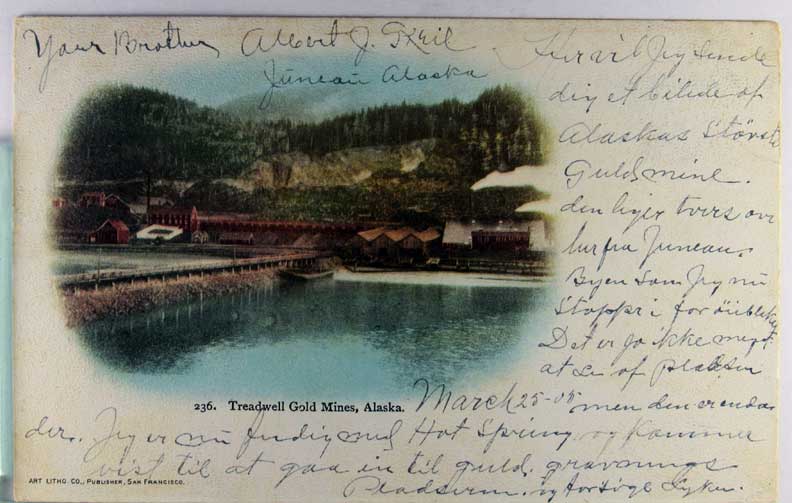 Your Brother Albert J.
Juneau Alaska
Her vil Jeg sende
dig et billede af
Alaskas Störste
Guldmine.
den liger tvers over
her fra Juneau.
Byen Som Jeg nu
Stopper i for öiblikket
Det er Jo ikke meget
at Se af pladsen
236. Treadwell Gold Mines, Alaska.
March 25-05 men den er endda
der. Jeg er nu med Hot Spring og kommer
vist til at gaa in til guld gravnings
ART LITHO. CO., PUBLISHER, SAN FRANCISCO.
Pladserne. og forsöge Lyken.